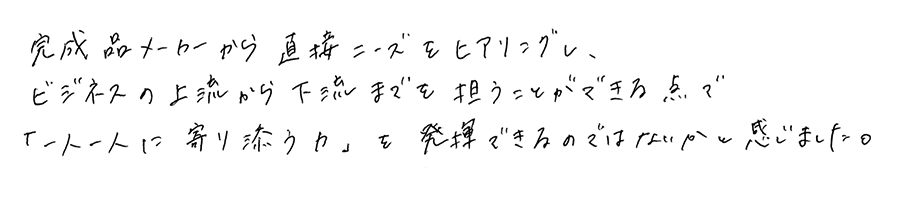 完成品メーカーから直接ニーズをヒアリングし、
ビジネスの上流から下流までを担うことができる点で
「一人一人に寄り添う力」を発揮できるのではないかと感じました。